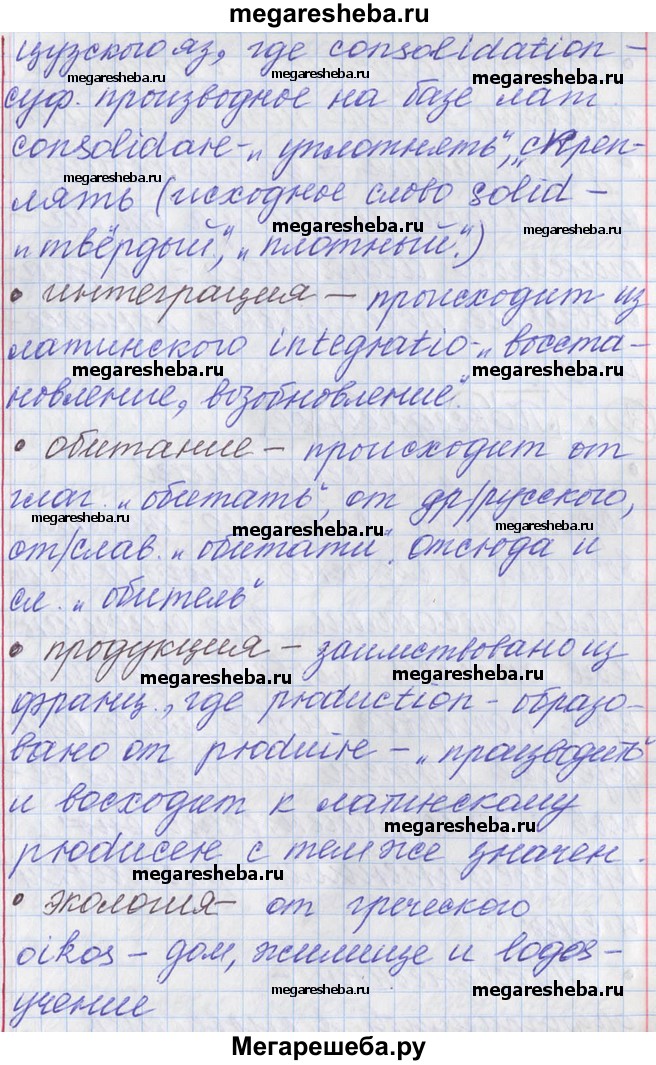 megaresheba.ru
цузского яз, где consolidation -
megaresheba.ru megaresheba.ru megaresheba.ru
суф. производное на базе лат.
consolidare - „уплотнять", „скреп-
megaresheba.ru
лять (исходное слово solid -
megaresheba.ru megaresheba.ru
„твёрдый", „плотный".)
• интеграция - происходит из
megaresheba.ru megaresheba.ru
латинского integratio - „восста-
megaresheba.ru megaresheba.ru
новление, возобновление".
• обитание - происходит от
megaresheba.ru megaresheba.ru
глаг. „обитать", от др/русского,
megaresheba.ru megaresheba.ru megaresheba.ru
от/слав. „обитати". Отсюда и
сл. „обитель"
• продукция - заимствовано из
megaresheba.ru megaresheba.ru
франц., где production - образо-
вано от produire - „производить"
и восходит к латинскому
megaresheba.ru
producere с тем же значен.
megaresheba.ru
• экология - от греческого
megaresheba.ru megaresheba.ru
oikos - дом, жилище и logos -
megaresheba.ru megaresheba.ru
учение
Мегарешеба.ру